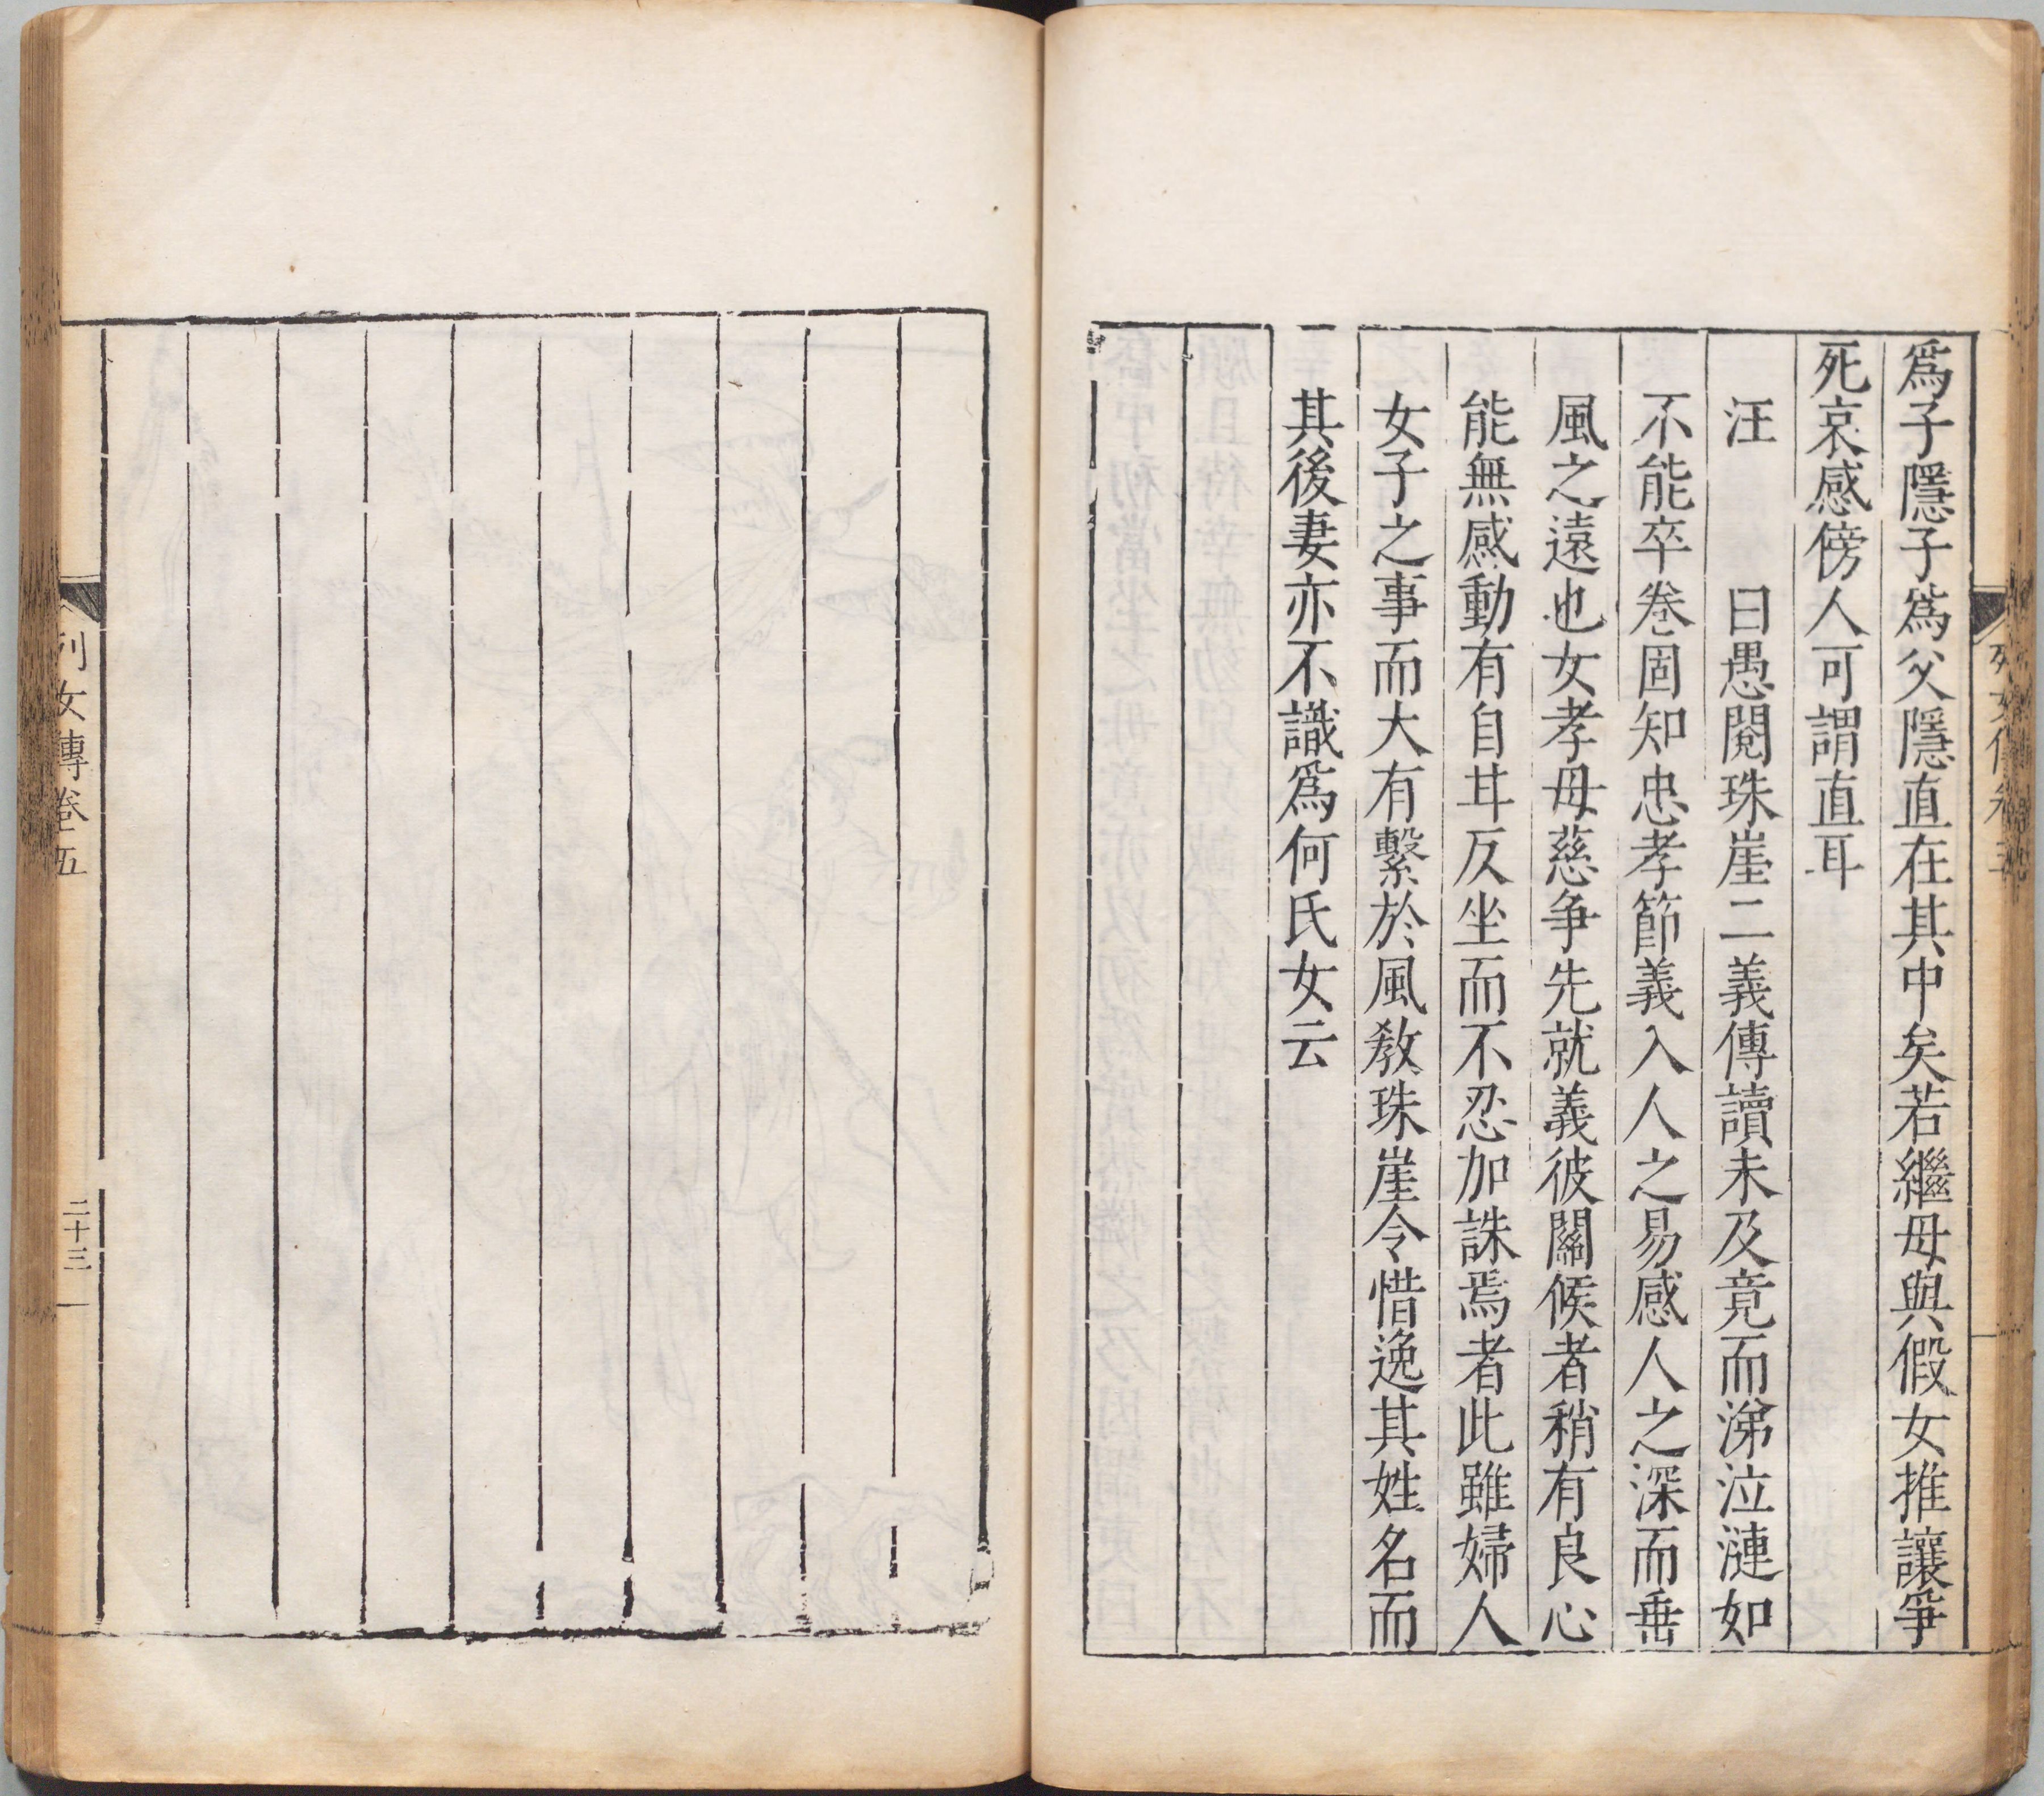 爲子隱子爲父隱直在其中矣若繼母與假女推讓爭
死哀感傍人可謂直耳
汪 曰愚閱珠崖二義傳讀未及竟而涕泣漣如
不能卒卷固知忠孝節義入人之易感人之深而垂
風之遠也女孝母慈争先就義彼關候者稍有良心
能無感動有自耳反坐而不忍加誅焉者此雖婦人
女子之事而大有繫於風教珠崖令惜逸其姓名而
其後妻亦不識爲何氏女云
列女傳卷五
二十三